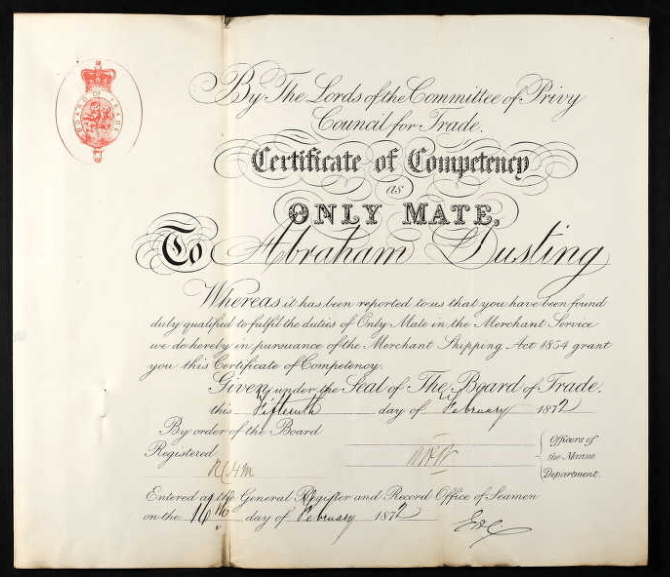 BOARD OF TRADE
By The Lords of the Committee of Privy
Council for Trade.
Certificate of Competency
as
ONLY MATE,
To Abraham Dusting
Whereas it has been reported to us that you have been found
duly qualified to fulfil the duties of Only Mate in the Merchant Service
we do hereby in pursuance of the Merchant Shipping Act 1854 grant
you this Certificate of Competency.
Given under the Seal of The Board of Trade.
this Fifteenth day of February 1872
By order of the Board
Officers of
the Marine
Department.
Registered
Entered at the General Register and Record Office of Seamen
on the 16th day of February 1872